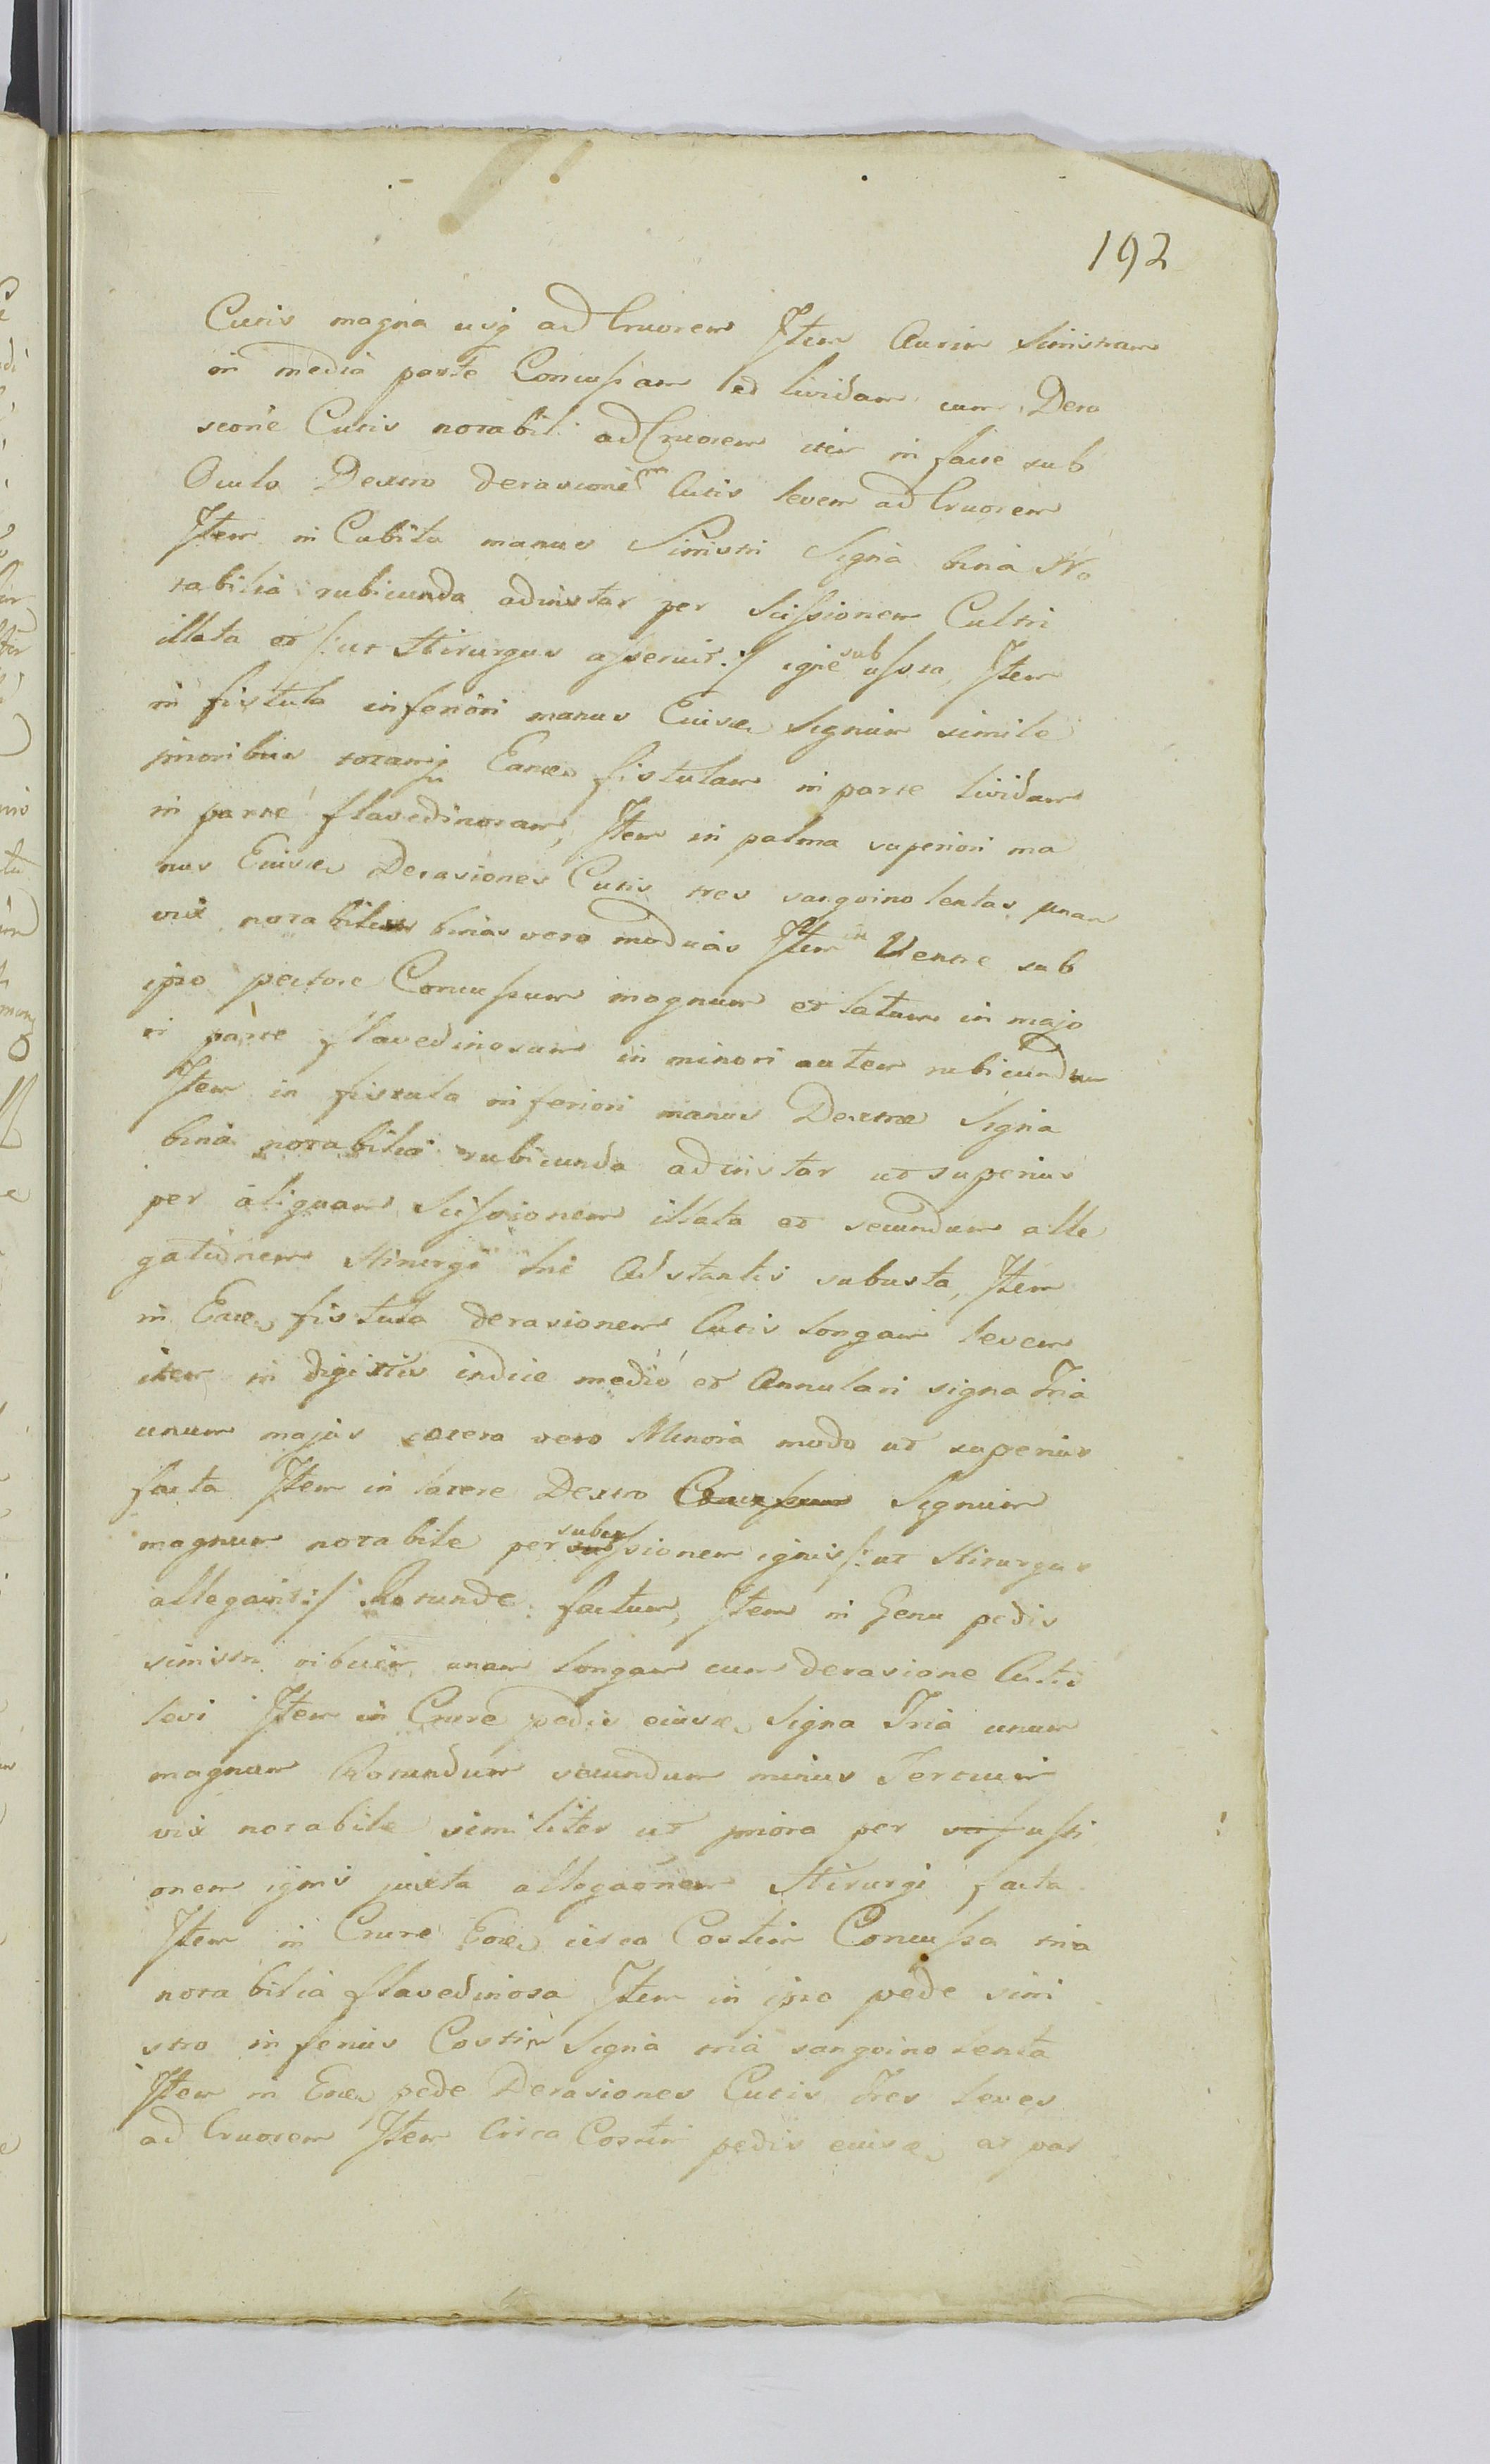 192
Cutis magna usq ad Cruorem Item Aurim sinistram
in media parte Concussam et lividam cum Dera
sione Cutis notabili ad Cruorem item in facie sub
Oculo Dextro derasionem Cutis levem ad Cruorem
Item in Cubitu manus Sinistri Signa bina No
tabilia rubicunda adinstar per Scissionem Cultri
illata et /:ut Hirurgus asseruit:/ igne sub ussta, Item
in fistula inferiori manus Eiusd. Signum simile
prioribus totamq Eand. fistulam in parte lividam
in parte flavedinosam, Item in palma superiori ma
nus Eiusd. Derasiones Cutis tres sanguino lentas unam
vix notabilem binas vero modicas Item in Ventre sub
ipso pectore Concussum magnum et latum in majo
ri parte flavedinosum in minori autem rubicundum
Item in fistula inferiori manus Dextræ Signa
bina notabilia rubicunda adinstar ut superius
per aliquam Scissionem illata et secundum alle
gationem Hirurgi hic Adstantis subusta, Item
in Ead. fistula derasionem Cutis longam levem
item in digitis indice medio et Annulari signa tria
unum majus cætera vero Minora modo ut superius
facta Item in latere Dextro Concussum Signum
magnum notabile per subussionem ignis /:ut Hirurgus
allegavit:/ Rotunde factum, Item in Genu pedis
sinistri vibicem unam longam cum derasione Cutis
levi Item in Crure pedis eiusd. Signa Tria unum
magnum Rotundum secundum minus Tertium
vix notabile similiter ut priora per ussi
onem ignis juxta allegaonem Hirurgi facta
Item in Crure Eod. circa Costim Concussa tria
notabilia flavedinosa Item in ipso pede sini
stro inferius Costim Signa tria sanguino lenta
Item in Eod. pede Derasiones Cutis Tres leves
ad Cruorem Item Circa Costim pedis eiusd. a par